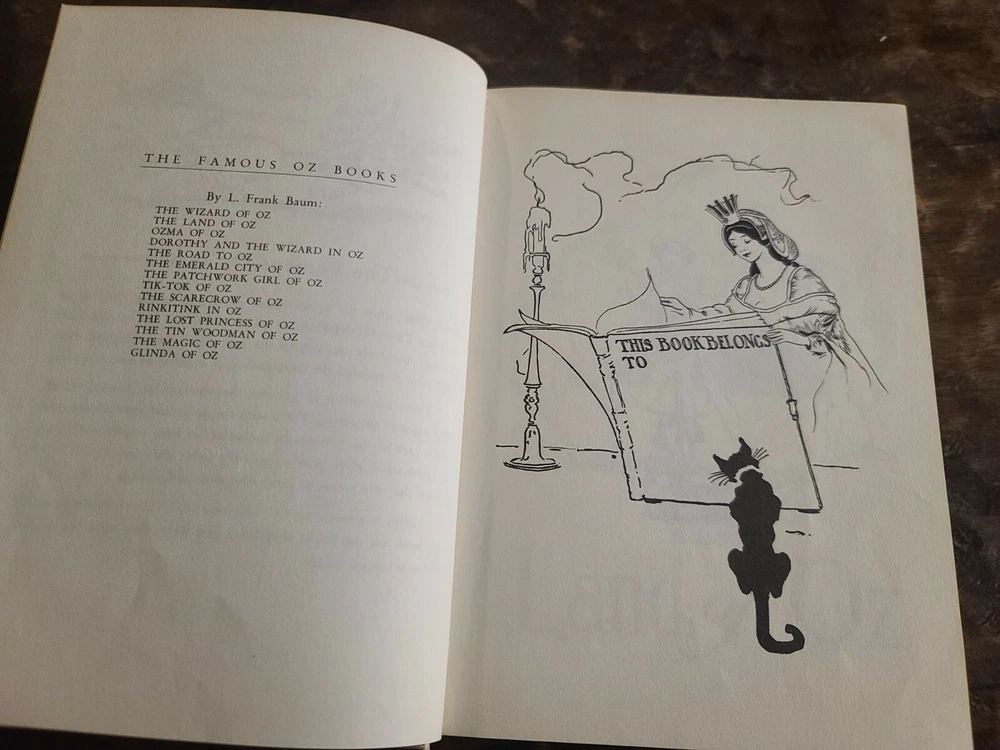 THE FAMOUS OZ BOOKS
By L. Frank Baum:
THE WIZARD OF OZ
THE LAND OF OZ
OZMA OF OZ
DOROTHY AND THE WIZARD IN OZ
THE ROAD TO OZ
THE EMERALD CITY OF OZ
THE PATCHWORK GIRL OF OZ
TIK-TOK OF OZ
THE SCARECROW OF OZ
RINKITINK IN OZ
THE LOST PRINCESS OF OZ
THE TIN WOODMAN OF OZ
THE MAGIC OF OZ
GLINDA OF OZ
THIS BOOK BELONGS
TO